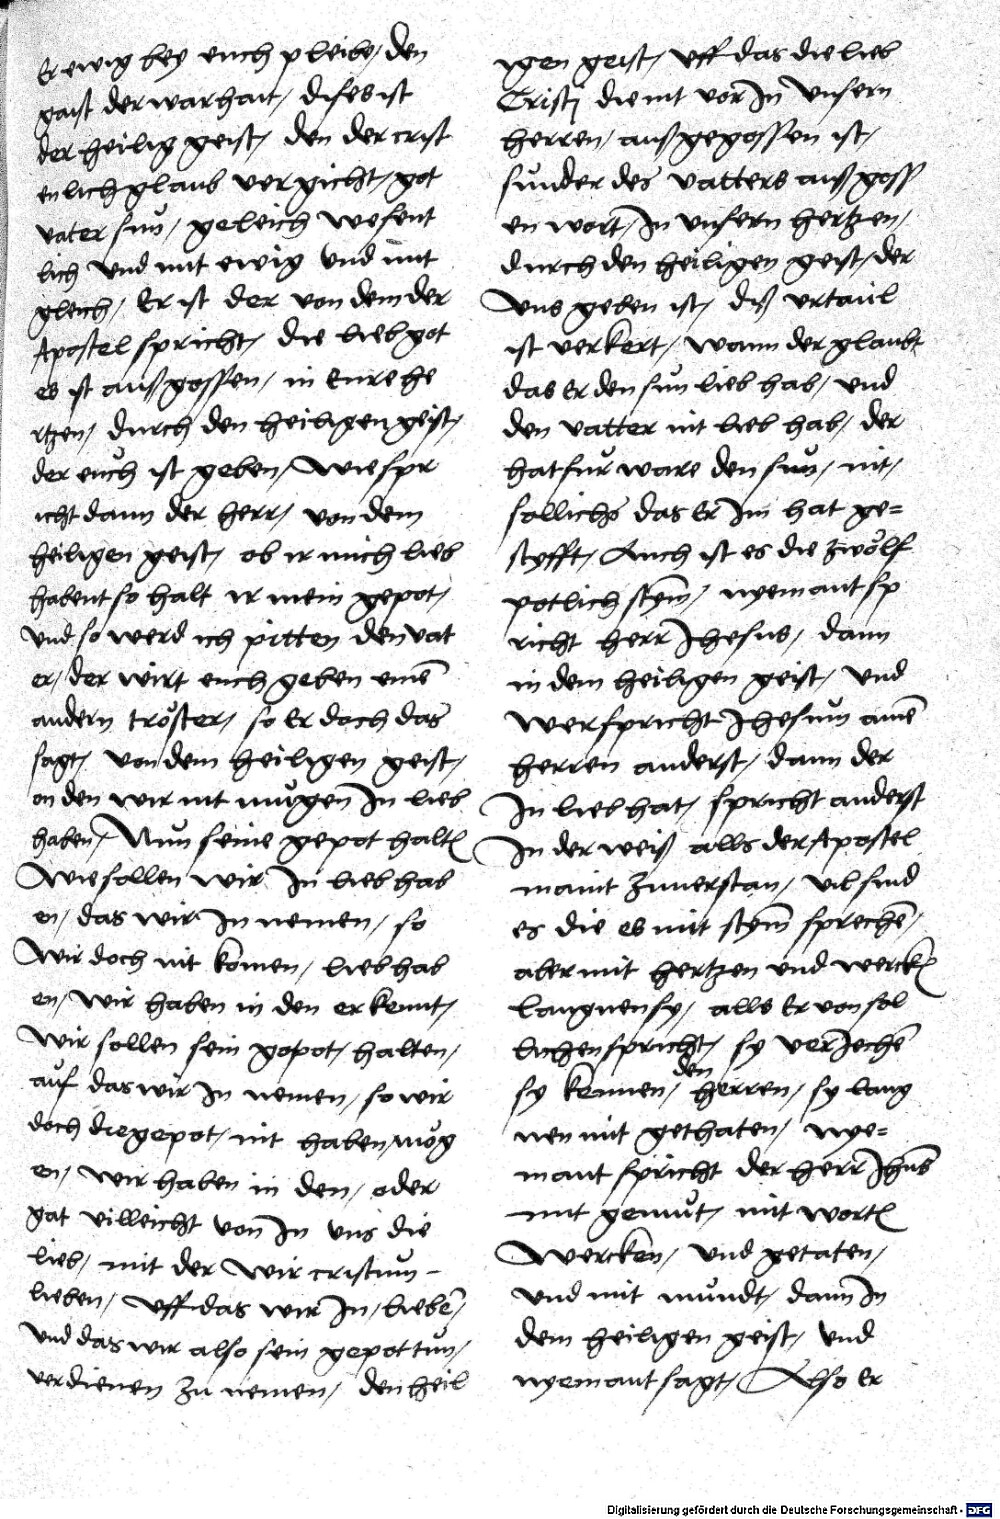 Er ewig bey euch pleibe / den
gaist der warhait / dises ist
der heilig geist / den der crist
enlich glaub vergicht / got
vater sun / geleich wesent
lich vnd mit ewig vnd mit
gleich / Er ist der von dem der
Apostel spricht / die lieb got
es ist auß gossen / in Eure he
rtzen / durch den heiligen geist /
der euch ist geben / Wie spr
icht dann der herr / von dem
heiligen geist / ob ir mich lieb
habent so halt ir mein gepot /
vnd so werd ich pitten den vat
er / der wirt euch geben einē
andern tröster / so Er doch das
sagt / von dem heiligen geist /
on den wir nit mügen In lieb
haben / Nun seine gepot haltē
Wie sollen wir In lieb hab
en / das wir In nemen / so
Wir doch nit komen / lieb hab
en / wir haben in den erkennt /
Wir sollen sein gopot / halten /
auf das wir In nemen / so wir
doch die gepot / nit haben / mög
en / wir haben in den / oder
gat villeicht von In vns die
lieb / mit der Wir cristum -
lieben / Vff das wir In / liebē /
vnd das wir also sein gepot tun /
verdienen zu nemen / den heil
igen geist / vff das die lieb
Cristj die nit vor In vnsern
herren / auß gegossen ist /
sunder des vatters auß goss
en wort / In vnsern hertzen /
durch den heiligen geist / der
Vns geben ist / diß vrtail
ist verkert / wann der glaubt
das Er den sun lieb hab / vnd
den vatter nit lieb hab / der
hat fur ware den sun / nit /
sollichs das Er Im hat ge=
styfft / Auch ist es die zwölf
potlich stym̄ / nyemant sp
richt herr Jhesus / dann
in dem heiligen geist / vnd
Wer spricht Jhesum ainē
herren anderst / dann der
In lieb hat / spricht anderst
In der weiß alls der Apostel
maint zuuerstan / vil sind
es die es mit stym̄ sprechē /
aber mit hertzen vnd werckē
laugnen sy / alls Er von sol
lichen spricht / sy verJechē
sy kennen / den herren / sy laug
nen mit gethaten / nye=
mant spricht der herr Jhūs
mit gemüt / mit wortē
Wercken / vnd getaten /
vnd mit mundt / dann In
dem heiligen geist / vnd
nyemant sagt / Also Er
Digitalisierung gefördert durch die Deutsche Forschungsgemeinschaft - DFG